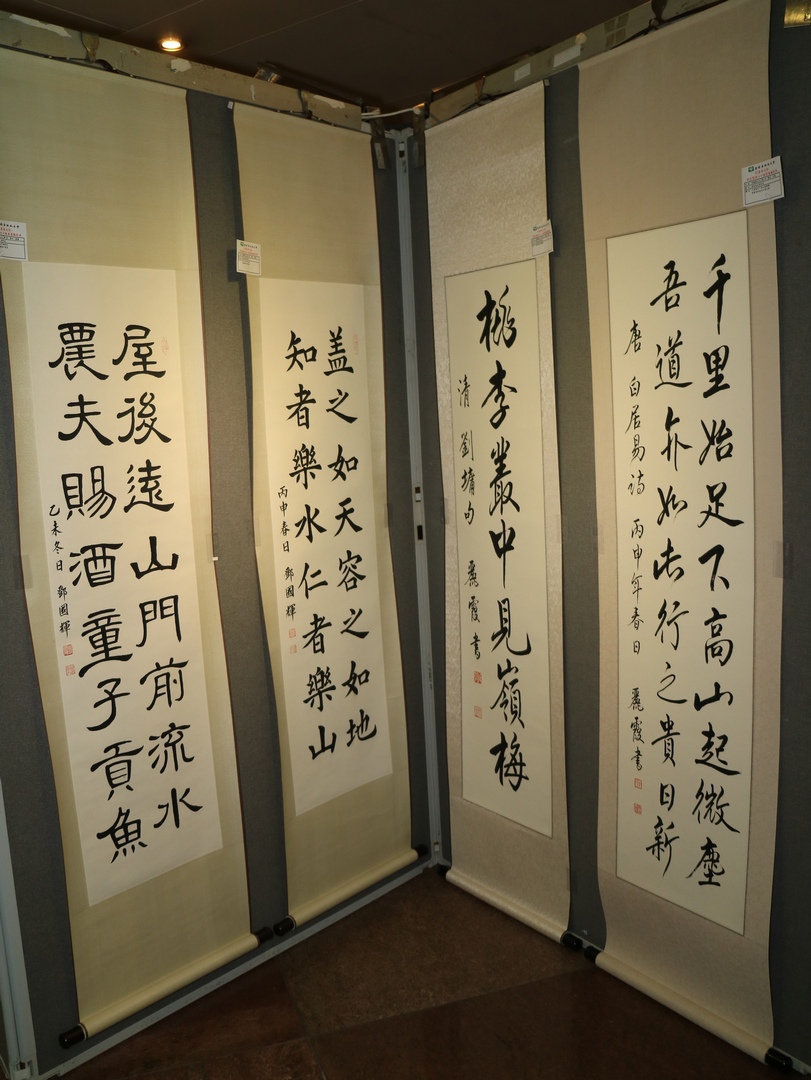 千里始足下高山起微塵
吾道亦如此行之貴日新
唐 白居易詩 丙申年春日 麗霞書
桃李叢中見嶺梅
清 劉墉句 麗霞書
蓋之如天容之如地
知者樂水仁者樂山
丙申春日 鄧國輝
屋後遠山門前流水
農夫賜酒童子貢魚
乙未冬日 鄧國輝